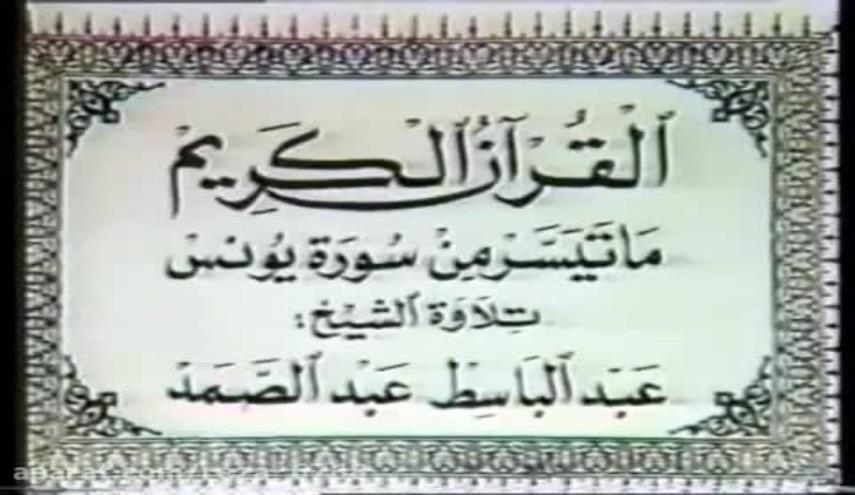 ٱلْقُرْآنُ ٱلْكَرِيمْ
مَا تَيَسَّرْ مِنْ سُورَة يُونسْ
تِلاوَة ٱلشيْخ:
عَبْد ٱلبَاسِطْ عَبْد ٱلصَّمَدْ
aparat.com/